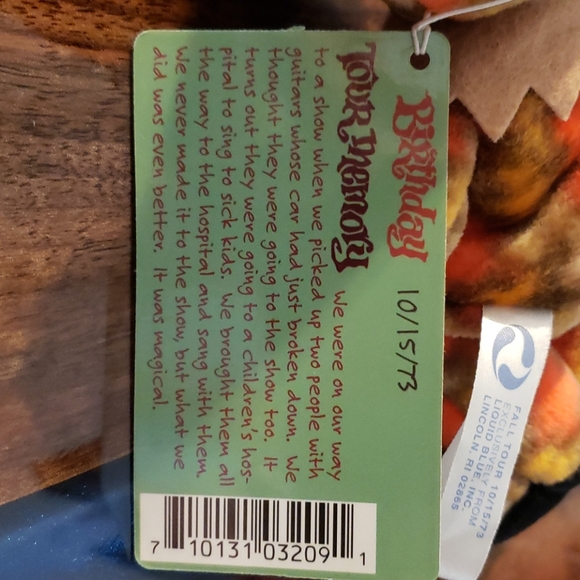 Birthday 10/15/73
TOUR Memory We were on our way
to a show when we picked up two people with
guitars whose car had just broken down. We
thought they were going to the show too. It
turns out they were going to a children's hos-
pital to sing to sick kids. We brought them all
the way to the hospital and sang with them.
We never made it to the show, but what we
did was even better. It was magical.
7 10131 03209 1
FALL TOUR 10/15/73
EXCLUSIVELY FROM
LIQUID BLUE INC.
LINCOLN, RI 02865